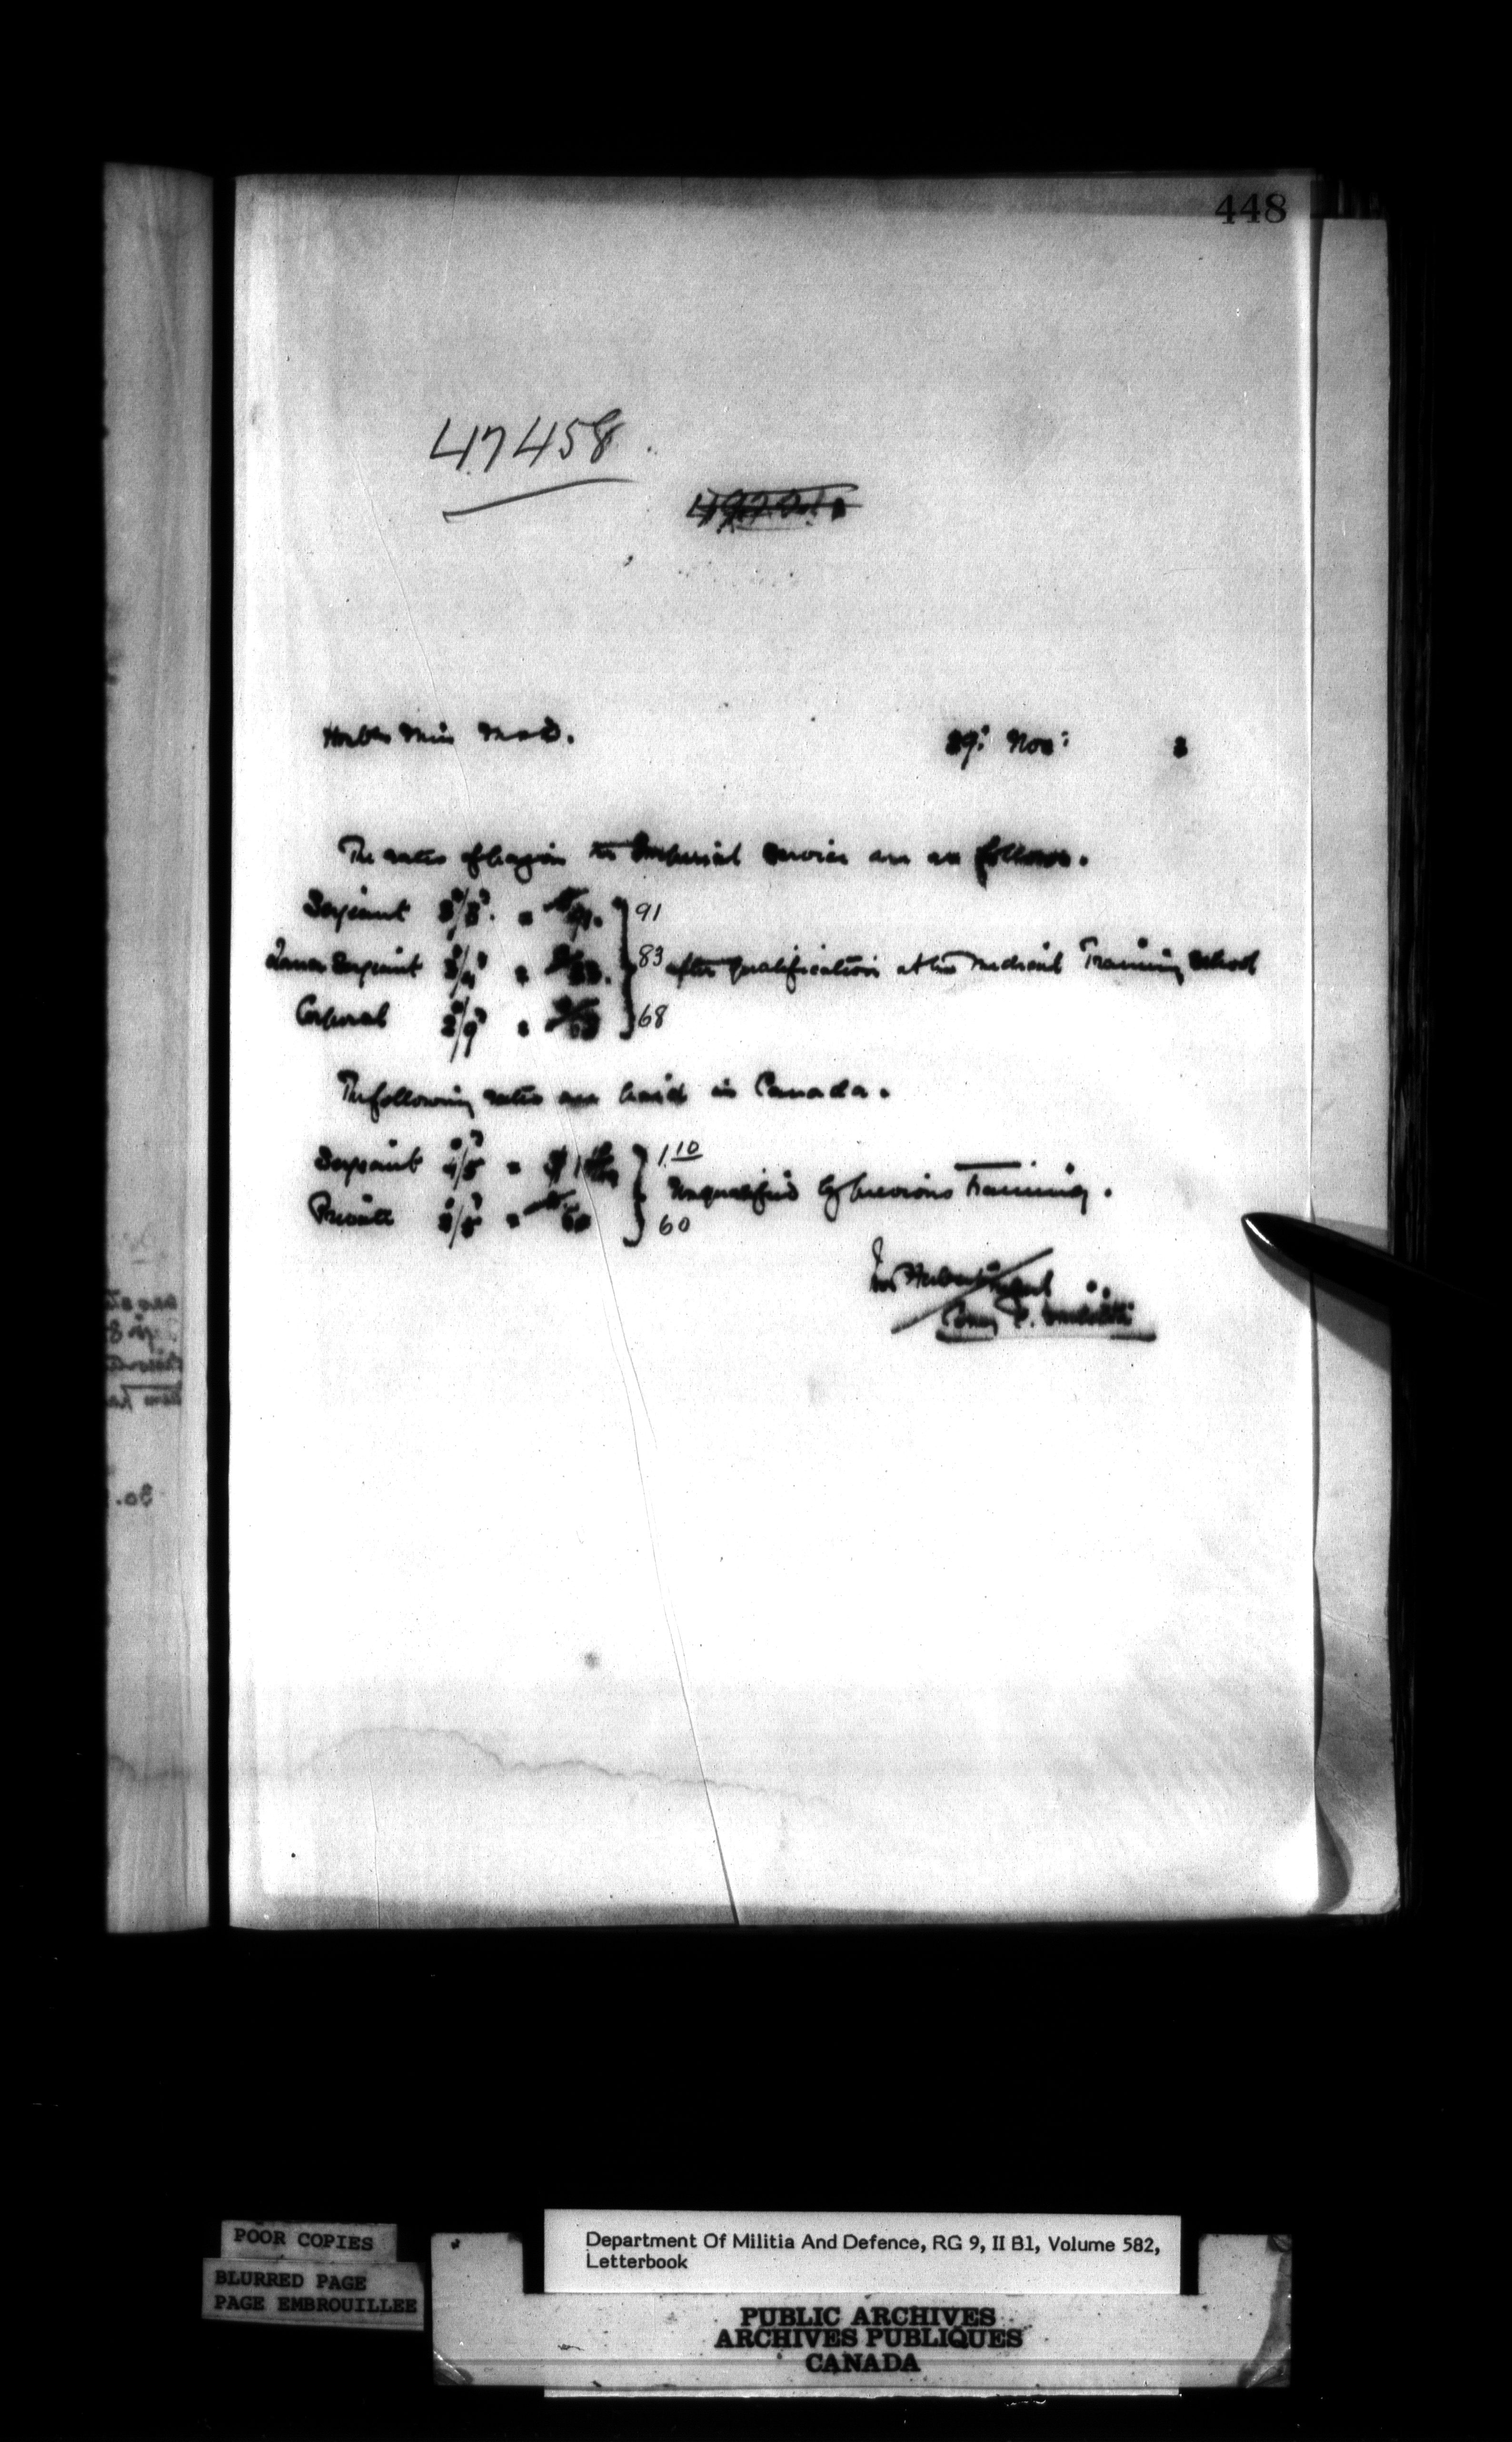 448
47458.
Honble Min M & D.
29: Nov: 8
The rates of pay in the Imperial service are as follows.
Sergeant 3/8 = 91. 91
Lance Sergeant 3/4 = 83. 83 after qualification at the Medical Training School
Corporal 2/9 = 68 68
The following rates are paid in Canada.
Sergeant 4/5 = $1 10/100 1.10
unqualified by previous Training.
Private 2/5 = 60 60
POOR COPIES
BLURRED PAGE
PAGE EMBROUILLEE
Department Of Militia And Defence, RG 9, II B1, Volume 582,
Letterbook
PUBLIC ARCHIVES
ARCHIVES PUBLIQUES
CANADA